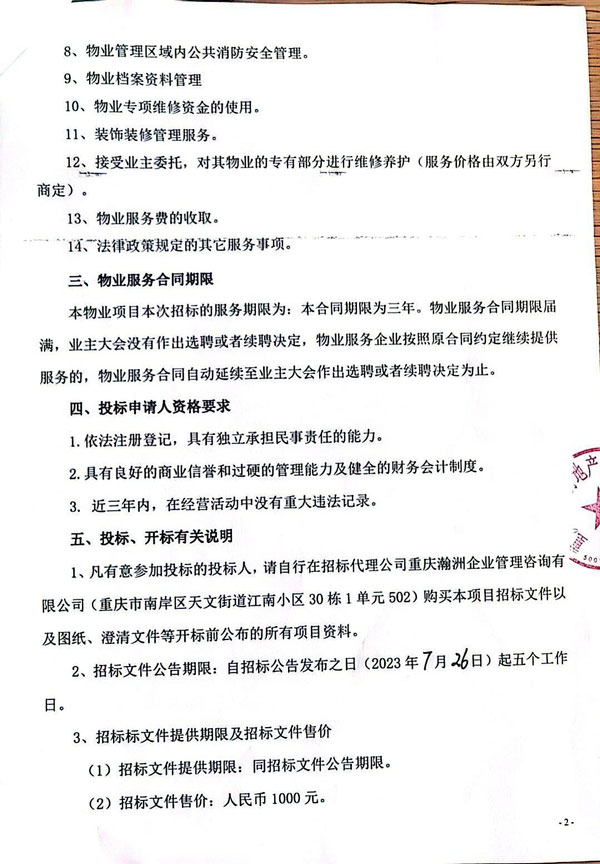 8、物业管理区域内公共消防安全管理。
9、物业档案资料管理
10、物业专项维修资金的使用。
11、装饰装修管理服务。
12、接受业主委托，对其物业的专有部分进行维修养护（服务价格由双方另行
商定）。
13、物业服务费的收取。
14、法律政策规定的其它服务事项。
三、物业服务合同期限
本物业项目本次招标的服务期限为：本合同期限为三年。物业服务合同期限届
满，业主大会没有作出选聘或者续聘决定，物业服务企业按照原合同约定继续提供
服务的，物业服务合同自动延续至业主大会作出选聘或者续聘决定为止。
四、投标申请人资格要求
1.依法注册登记，具有独立承担民事责任的能力。
2.具有良好的商业信誉和过硬的管理能力及健全的财务会计制度。
3. 近三年内，在经营活动中没有重大违法记录。
五、投标、开标有关说明
1、凡有意参加投标的投标人，请自行在招标代理公司重庆瀚洲企业管理咨询有
限公司（重庆市南岸区天文街道江南小区 30 栋 1 单元 502）购买本项目招标文件以
及图纸、澄清文件等开标前公布的所有项目资料。
2、招标文件公告期限：自招标公告发布之日（2023 年 7 月 26 日）起五个工作
日。
3、招标标文件提供期限及招标文件售价
（1）招标文件提供期限：同招标文件公告期限。
（2）招标文件售价：人民币 1000 元。
地产
500
- 2 -